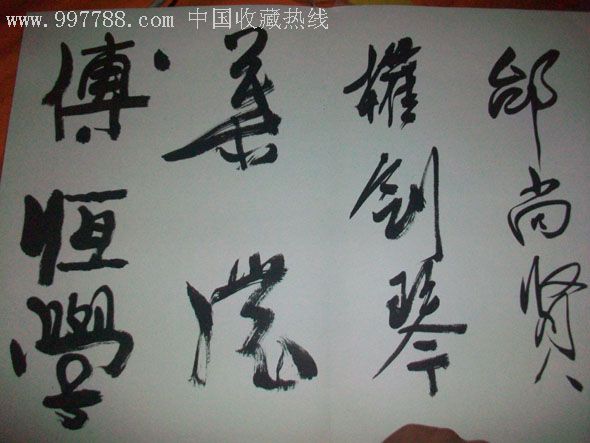 www.997788.com 中国收藏热线
邰尚贤
權剑琴
傅恒學